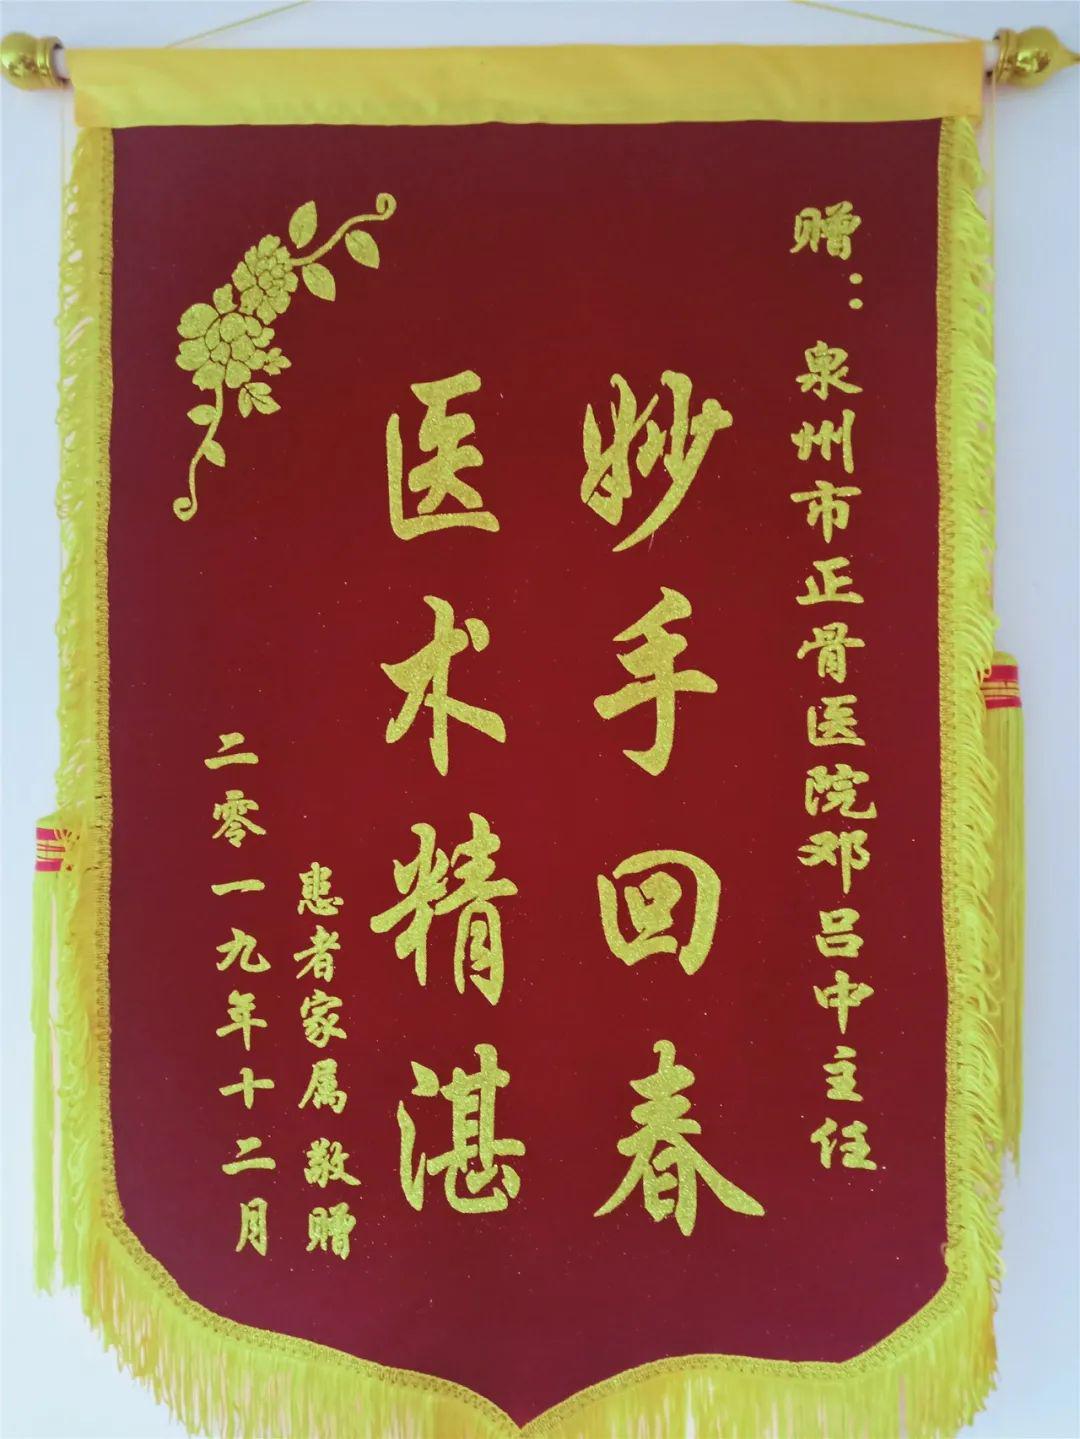 赠：泉州市正骨医院邓吕中主任
妙手回春
医术精湛
患者家属 敬赠
二零一九年十二月